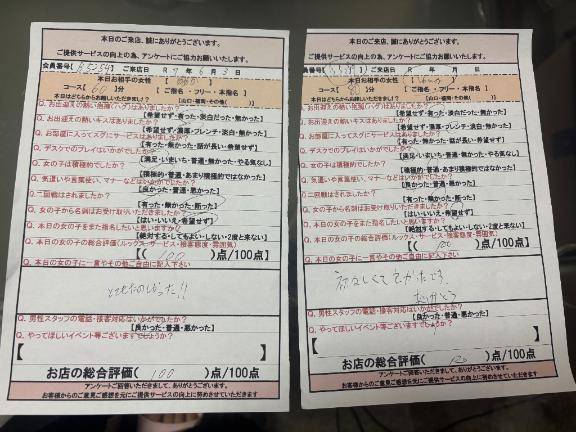 本日のご来店、誠にありがとうございます。
ご提供サービスの向上の為、アンケートにご協力お願いいたします。
会員番号【 】ご来店日 R 7 年 6 月 3 日
本日お相手の女性
コース【 60 】分 【 ご指名 ・ フリー ・ 本指名 】
本日はどちらからお越しいただきましたか？ 【山口・福岡・その他( )】
Q. お出迎えの熱い抱擁(ハグ)はありましたか？
【希望せず・有った・淡白だった・無かった】
Q. お出迎えの熱いキスはありましたか？
【希望せず・濃厚・フレンチ・淡白・無かった】
Q. お部屋に入ってスグにサービスはありましたか？
【有った・無かった・話が長い・希望せず】
Q. デスクでのプレイはいかがでしたか？
【満足・いまいち・普通・無かった・やる気なし】
Q. 女の子は積極的でしたか？
【積極的・普通・あまり積極的ではなかった】
Q. 気遣いや言葉使い、マナーなどはいかがでしたか？
【良かった・普通・悪かった】
Q. 二回戦はされましたか？
【有った・無かった・断った】
Q. 女の子から名刺はお受け取りいただきましたか？
【はい・いいえ・希望せず】
Q. 本日の女の子をまた指名したいと思いますか？
【絶対する・してもよい・しない・2度と来ない】
Q. 本日の女の子の総合評価(ルックス・サービス・接客態度・雰囲気)
【( 100 )点/100点】
Q. 本日の女の子に一言やその他ご自由に記入下さい
とてもたのしかった!!
Q. 男性スタッフの電話・接客対応はいかがでしたか？
【良かった・普通・悪かった】
Q. やってほしいイベント等ございますでしょうか？
【 】
お店の総合評価( 100 )点/100点
アンケートご回答いただきまして、ありがとうございます。
お客様からのご意見ご感想を元にご提供サービスの向上に努めさせていただきます
本日のご来店、誠にありがとうございます。
ご提供サービスの向上の為、アンケートにご協力お願いいたします。
会員番号【 】ご来店日 R 年 月 日
本日お相手の女性
コース【 】分 【 ご指名 ・ フリー ・ 本指名 】
本日はどちらからお越しいただきましたか？ 【山口・福岡・その他( )】
Q. お出迎えの熱い抱擁(ハグ)はありましたか？
【希望せず・有った・淡白だった・無かった】
Q. お出迎えの熱いキスはありましたか？
【希望せず・濃厚・フレンチ・淡白・無かった】
Q. お部屋に入ってスグにサービスはありましたか？
【有った・無かった・話が長い・希望せず】
Q. デスクでのプレイはいかがでしたか？
【満足・いまいち・普通・無かった・やる気なし】
Q. 女の子は積極的でしたか？
【積極的・普通・あまり積極的ではなかった】
Q. 気遣いや言葉使い、マナーなどはいかがでしたか？
【良かった・普通・悪かった】
Q. 二回戦はされましたか？
【有った・無かった・断った】
Q. 女の子から名刺はお受け取りいただきましたか？
【はい・いいえ・希望せず】
Q. 本日の女の子をまた指名したいと思いますか？
【絶対する・してもよい・しない・2度と来ない】
Q. 本日の女の子の総合評価(ルックス・サービス・接客態度・雰囲気)
【( 100 )点/100点】
Q. 本日の女の子に一言やその他ご自由に記入下さい
よかったです。
ありがとう
Q. 男性スタッフの電話・接客対応はいかがでしたか？
【良かった・普通・悪かった】
Q. やってほしいイベント等ございますでしょうか？
【 】
お店の総合評価( )点/100点
アンケートご回答いただきまして、ありがとうございます。
お客様からのご意見ご感想を元にご提供サービスの向上に努めさせていただきます